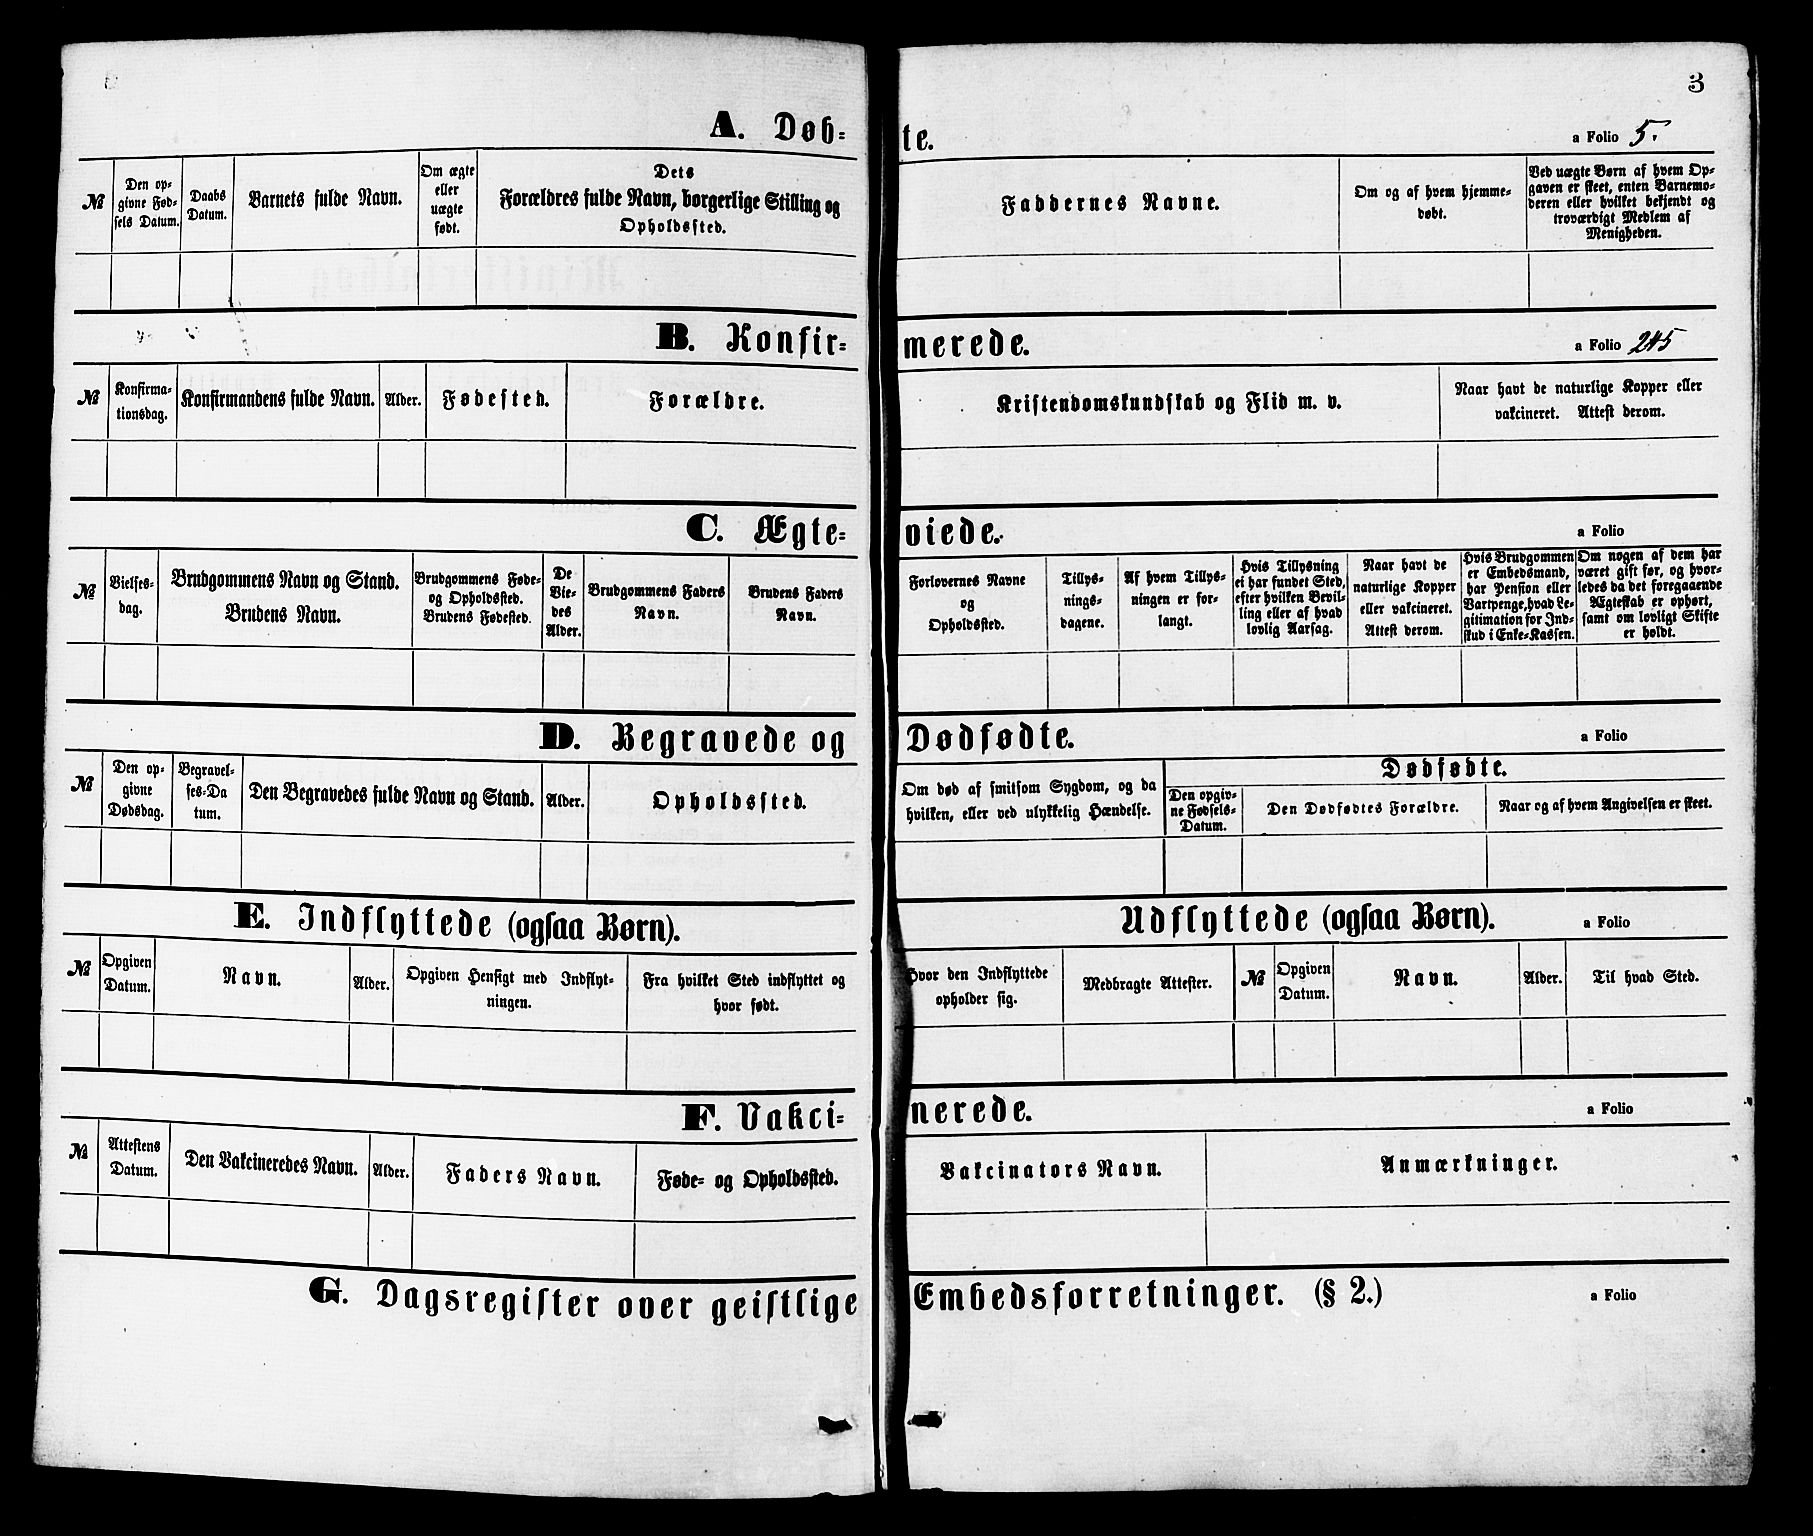 3
A. Døb-
te.
a Folio 5.
№
Den op-
givne Fød-
sels Datum.
Daabs
Datum.
Barnets fulde Navn.
Om ægte
eller
uægte
født.
Dets
Forældres fulde Navn, borgerlige Stilling og
Opholdssted.
Faddernes Navne.
Om og af hvem hjemme-
døbt.
Ved uægte Børn af hvem Op-
gaven er skeet, enten Barnemo-
deren eller hvilket bekjendt og
troværdigt Medlem af
Menigheden.
B. Konfir-
merede.
a Folio 245
№
Konfirma-
tionsdag.
Konfirmandens fulde Navn.
Alder.
Fødested.
Forældre.
Kristendomskundskab og Flid m. v.
Naar havt de naturlige Kopper eller
vakcineret. Attest derom.
C. Ægte-
viede.
a Folio
№
Vielses-
dag.
Brudgommens Navn og Stand.
Brudens Navn.
Brudgommens Føde-
og Opholdssted.
Brudens Fødested.
De
Vie-
des
Alder.
Brudgommens Faders
Navn.
Brudens Faders
Navn.
Forlovernes Navne
og
Opholdssted.
Tillys-
nings-
dagene.
Af hvem Tillys-
ningen er for-
langt.
Hvis Tillysning
ei har fundet Sted,
efter hvilken Bevil-
ling eller af hvad
lovlig Aarsag.
Naar havt de
naturlige Kopper
eller vakcineret.
Attest derom.
Hvis Brudgommen
er Embedsmand,
har Pension eller
Vartpenge, hvad Le-
gitimation for Ind-
skud i Enke-Kassen.
Om nogen af dem har
været gift før, og hvor-
ledes da det foregaaende
Ægteskab er ophørt,
samt om lovligt Skifte
er holdt.
D. Begravede og
Dødfødte.
a Folio
№
Den op-
givne
Dødsdag.
Begravel-
ses-Da
tum.
Den Begravedes fulde Navn og Stand.
Alder.
Opholdssted.
Om død af smitsom Sygdom, og da
hvilken, eller ved ulykkelig Hændelse.
Dødfødte.
Den opgiv-
ne Fødsels-
Datum.
Den Dødfødtes Forældre.
Naar og af hvem Angivelsen er skeet.
E. Indflyttede (ogsaa Børn).
Udflyttede (ogsaa Børn).
a Folio
№
Opgiven
Datum.
Navn.
Alder.
Opgiven Hensigt med Indflyt-
ningen.
Fra hvilket Sted indflyttet og
hvor født.
Hvor den Indflyttede
opholder sig.
Medbragte Attester.
№
Opgiven
Datum.
Navn.
Alder.
Til hvad Sted.
F. Vakci-
nerede.
a Folio
№
Attestens
Datum.
Den Vakcineredes Navn.
Alder.
Faders Navn.
Føde- og Opholdssted.
Vakcinators Navn.
Anmærkninger.
G. Dagsregister over geistlige
Embedsforretninger. (§ 2.)
a Folio